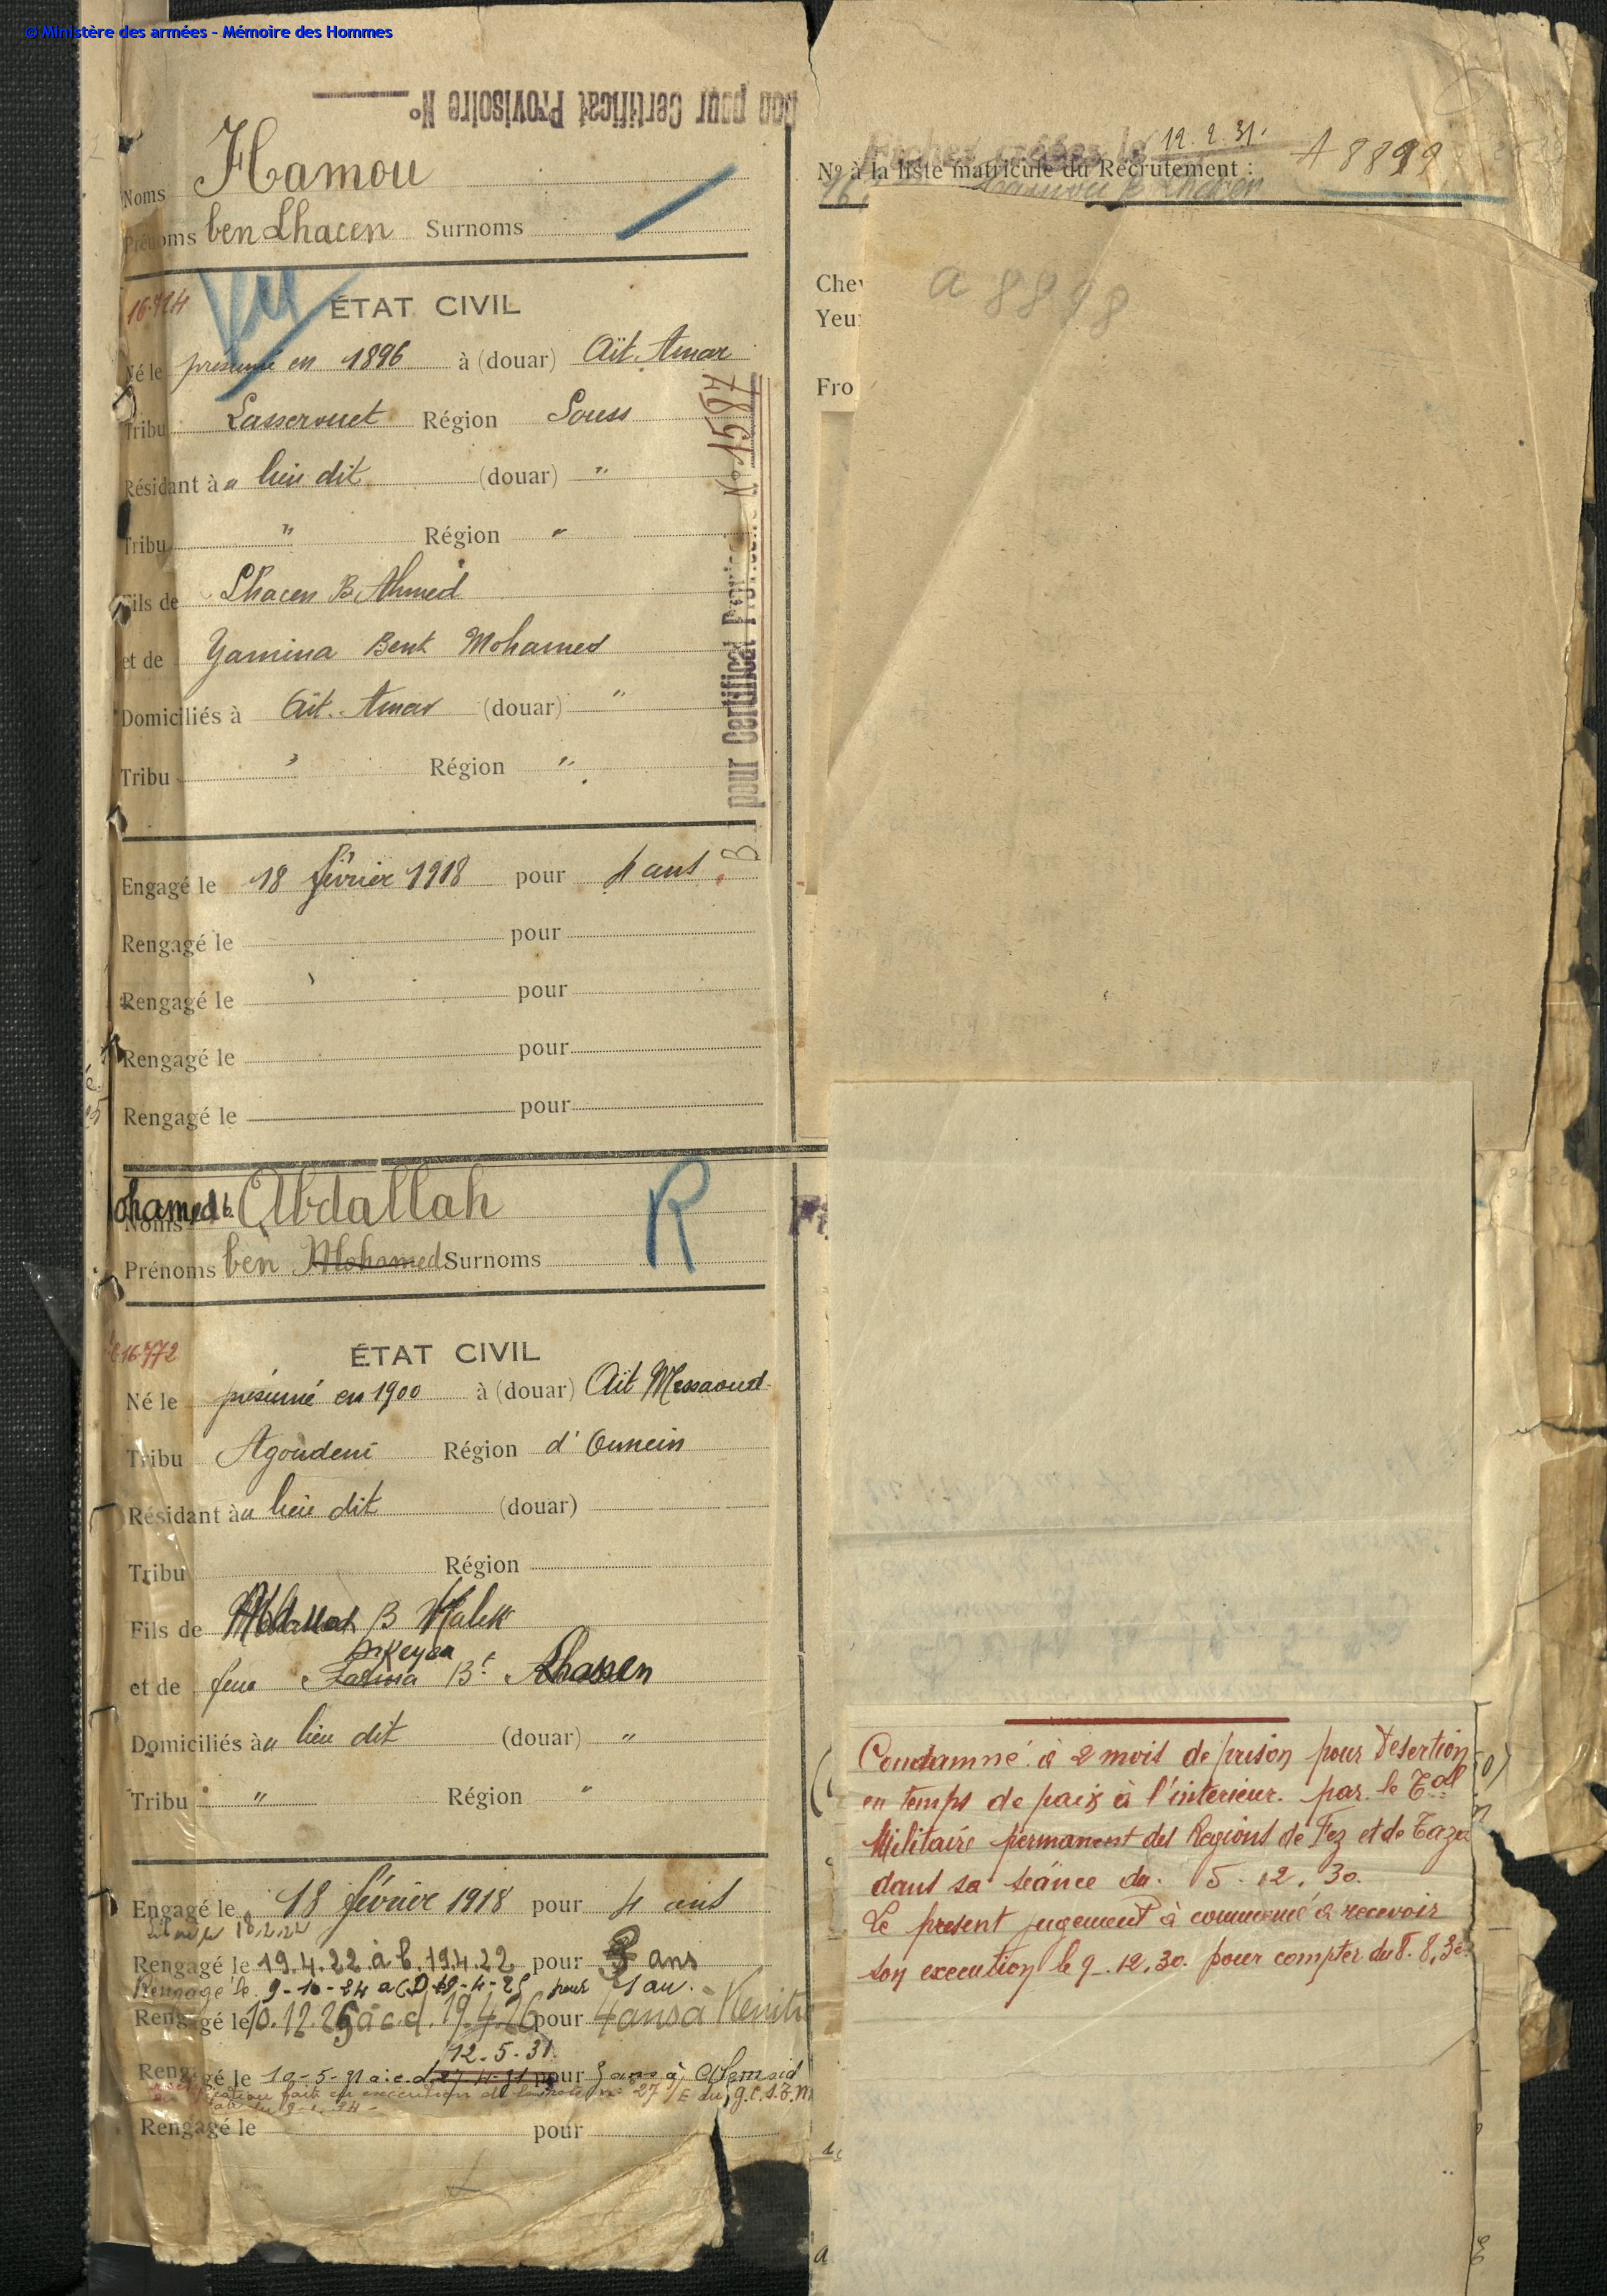 © Ministère des armées - Mémoire des Hommes
Bon pour Certificat Provisoire N°
Noms Hamou
Prénoms ben Lhacen Surnoms
16.724
ÉTAT CIVIL
Né le présumé en 1896 à (douar) Aït. Amar
Tribu Lasserouet Région Souss
Résidant à u lieu dit (douar) "
Tribu " Région "
Fils de Lhacen B. Ahmed
et de Yamina Bent Mohamed
Domiciliés à Aït. Amar (douar) "
Tribu " Région "
pour Certificat N° 1587
Engagé le 18 février 1918 pour 4 ans
Rengagé le pour
Rengagé le pour
Rengagé le pour
Rengagé le pour
ohamed b.
Noms Abdallah
Prénoms ben Mohamed Surnoms
R
16.772
ÉTAT CIVIL
Né le présumé en 1900 à (douar) Aït Messaoud
Tribu Agoudeni Région d'Ounein
Résidant à u lieu dit (douar)
Tribu Région
Fils de Abdallah B Malek
et de feue B.t Lhassen
Domiciliés à u lieu dit (douar) "
Tribu " Région "
Engagé le 18 février 1918 pour 4 ans
18.2.22
Rengagé le 19.4.22 à c. 19.4.22 pour 3 ans
Rengagé le 9-10-24 a C.D 19-4-25 pour 1 an.
Rengagé le 10.12.25 à c.d. 19.4.26 pour 4 ans à Kenitra
12.5.31.
Rengagé le 10-5-31 a.c.d. pour 5 ans à
fait en execution de la note n° 27/E du g.C.S.T.M
Rengagé le pour
Fiches créées le 12.2.31. A 8899
N° à la liste matricule du Recrutement :
Hamou B Lhacen
Chev
Yeu
Fro
a 8898
Condamné à 2 mois de prison pour Désertion
en temps de paix à l'intérieur. par le Tal
Militaire permanent des Régions de Fez et de Taza
dans sa séance du. 5.12.30.
Le présent jugement à commencé à recevoir
son execution le 9.12.30. pour compter du 8.8.30